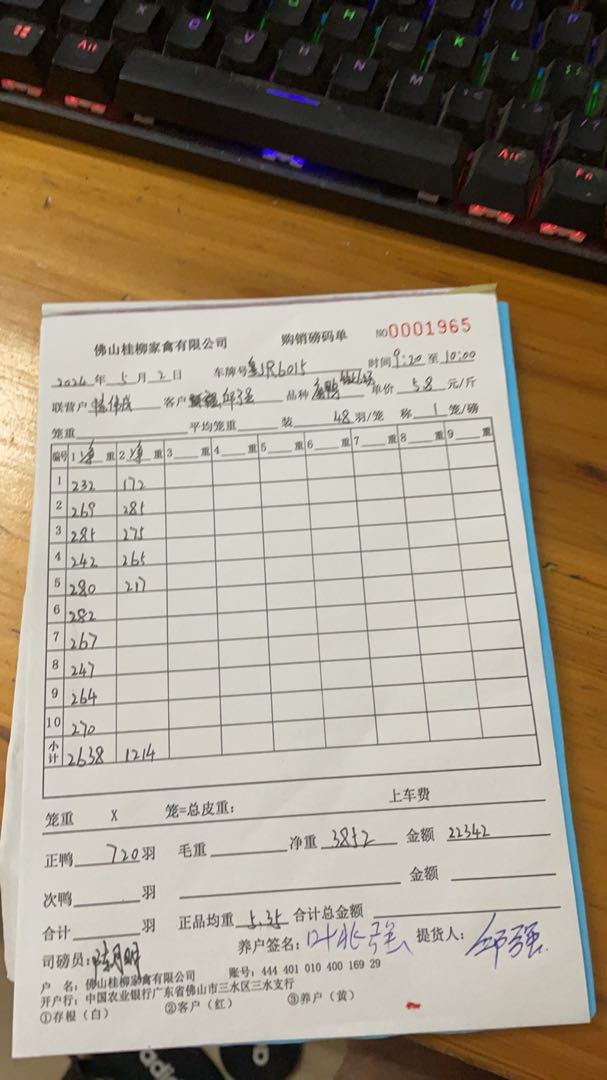 佛山桂柳家禽有限公司 购销磅码单 NO 0001965
2024 年 5 月 2 日 车牌号 JR6015 时间 9:20 至 10:00
联营户 客户 邱强 品种 单价 5.8 元/斤
笼重 平均笼重 装 48 羽/笼 称 1 笼/磅
编号 1 净 重 2 净 重 3 重 4 重 5 重 6 重 7 重 8 重 9 重
1 232 172
2 269 285
3 285 275
4 242 265
5 280 217
6 282
7 267
8 247
9 264
10 270
小计 2638 1214
笼重 X 笼=总皮重: 上车费
正鸭 720 羽 毛重 净重 3852 金额 22342
次鸭 羽 金额
合计 羽 正品均重 5.35 合计总金额
司磅员: 养户签名: 叶兆强 提货人: 邱强
户 名: 佛山桂柳家禽有限公司 账号: 444 401 010 400 169 29
开户行: 中国农业银行广东省佛山市三水区三水支行
①存根（白） ②客户（红） ③养户（黄）
Alt
Alt
Fn
V
N
M
J
K
L
H